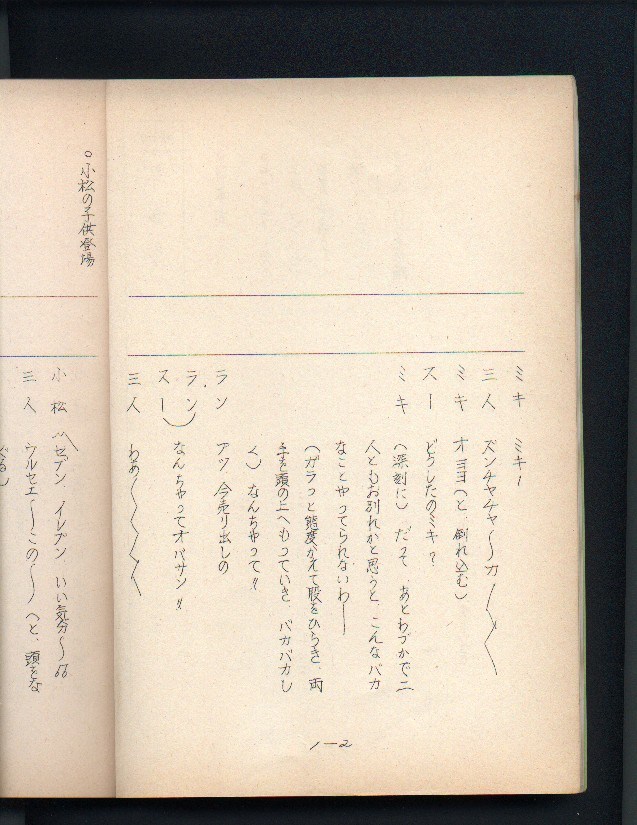 ミキ　ミキー
三人　ズンチャチャ〜〜カ〜〜〜
ミキ　オヨヨ（と、倒れ込む）
スー　どうしたのミキ？
ミキ　（深刻に）だって、あとわづかで二
人ともお別れかと思うと、こんなバカ
なことやってられないわ——
（ガラっと態度かえて股をひらき、両
手を頭の上へもっていき、バカバカし
く）なんちゃって!!
ラン　アッ今売り出しの
ラン）
スー）なんちゃってオバサン!!
三人　わあ〜〜〜〜
1—2
○小松の子供登場
小松　セブン、イレブン　いい気分〜♫
三人　ウルセェ〜この〜（と、頭をな
ぐる）